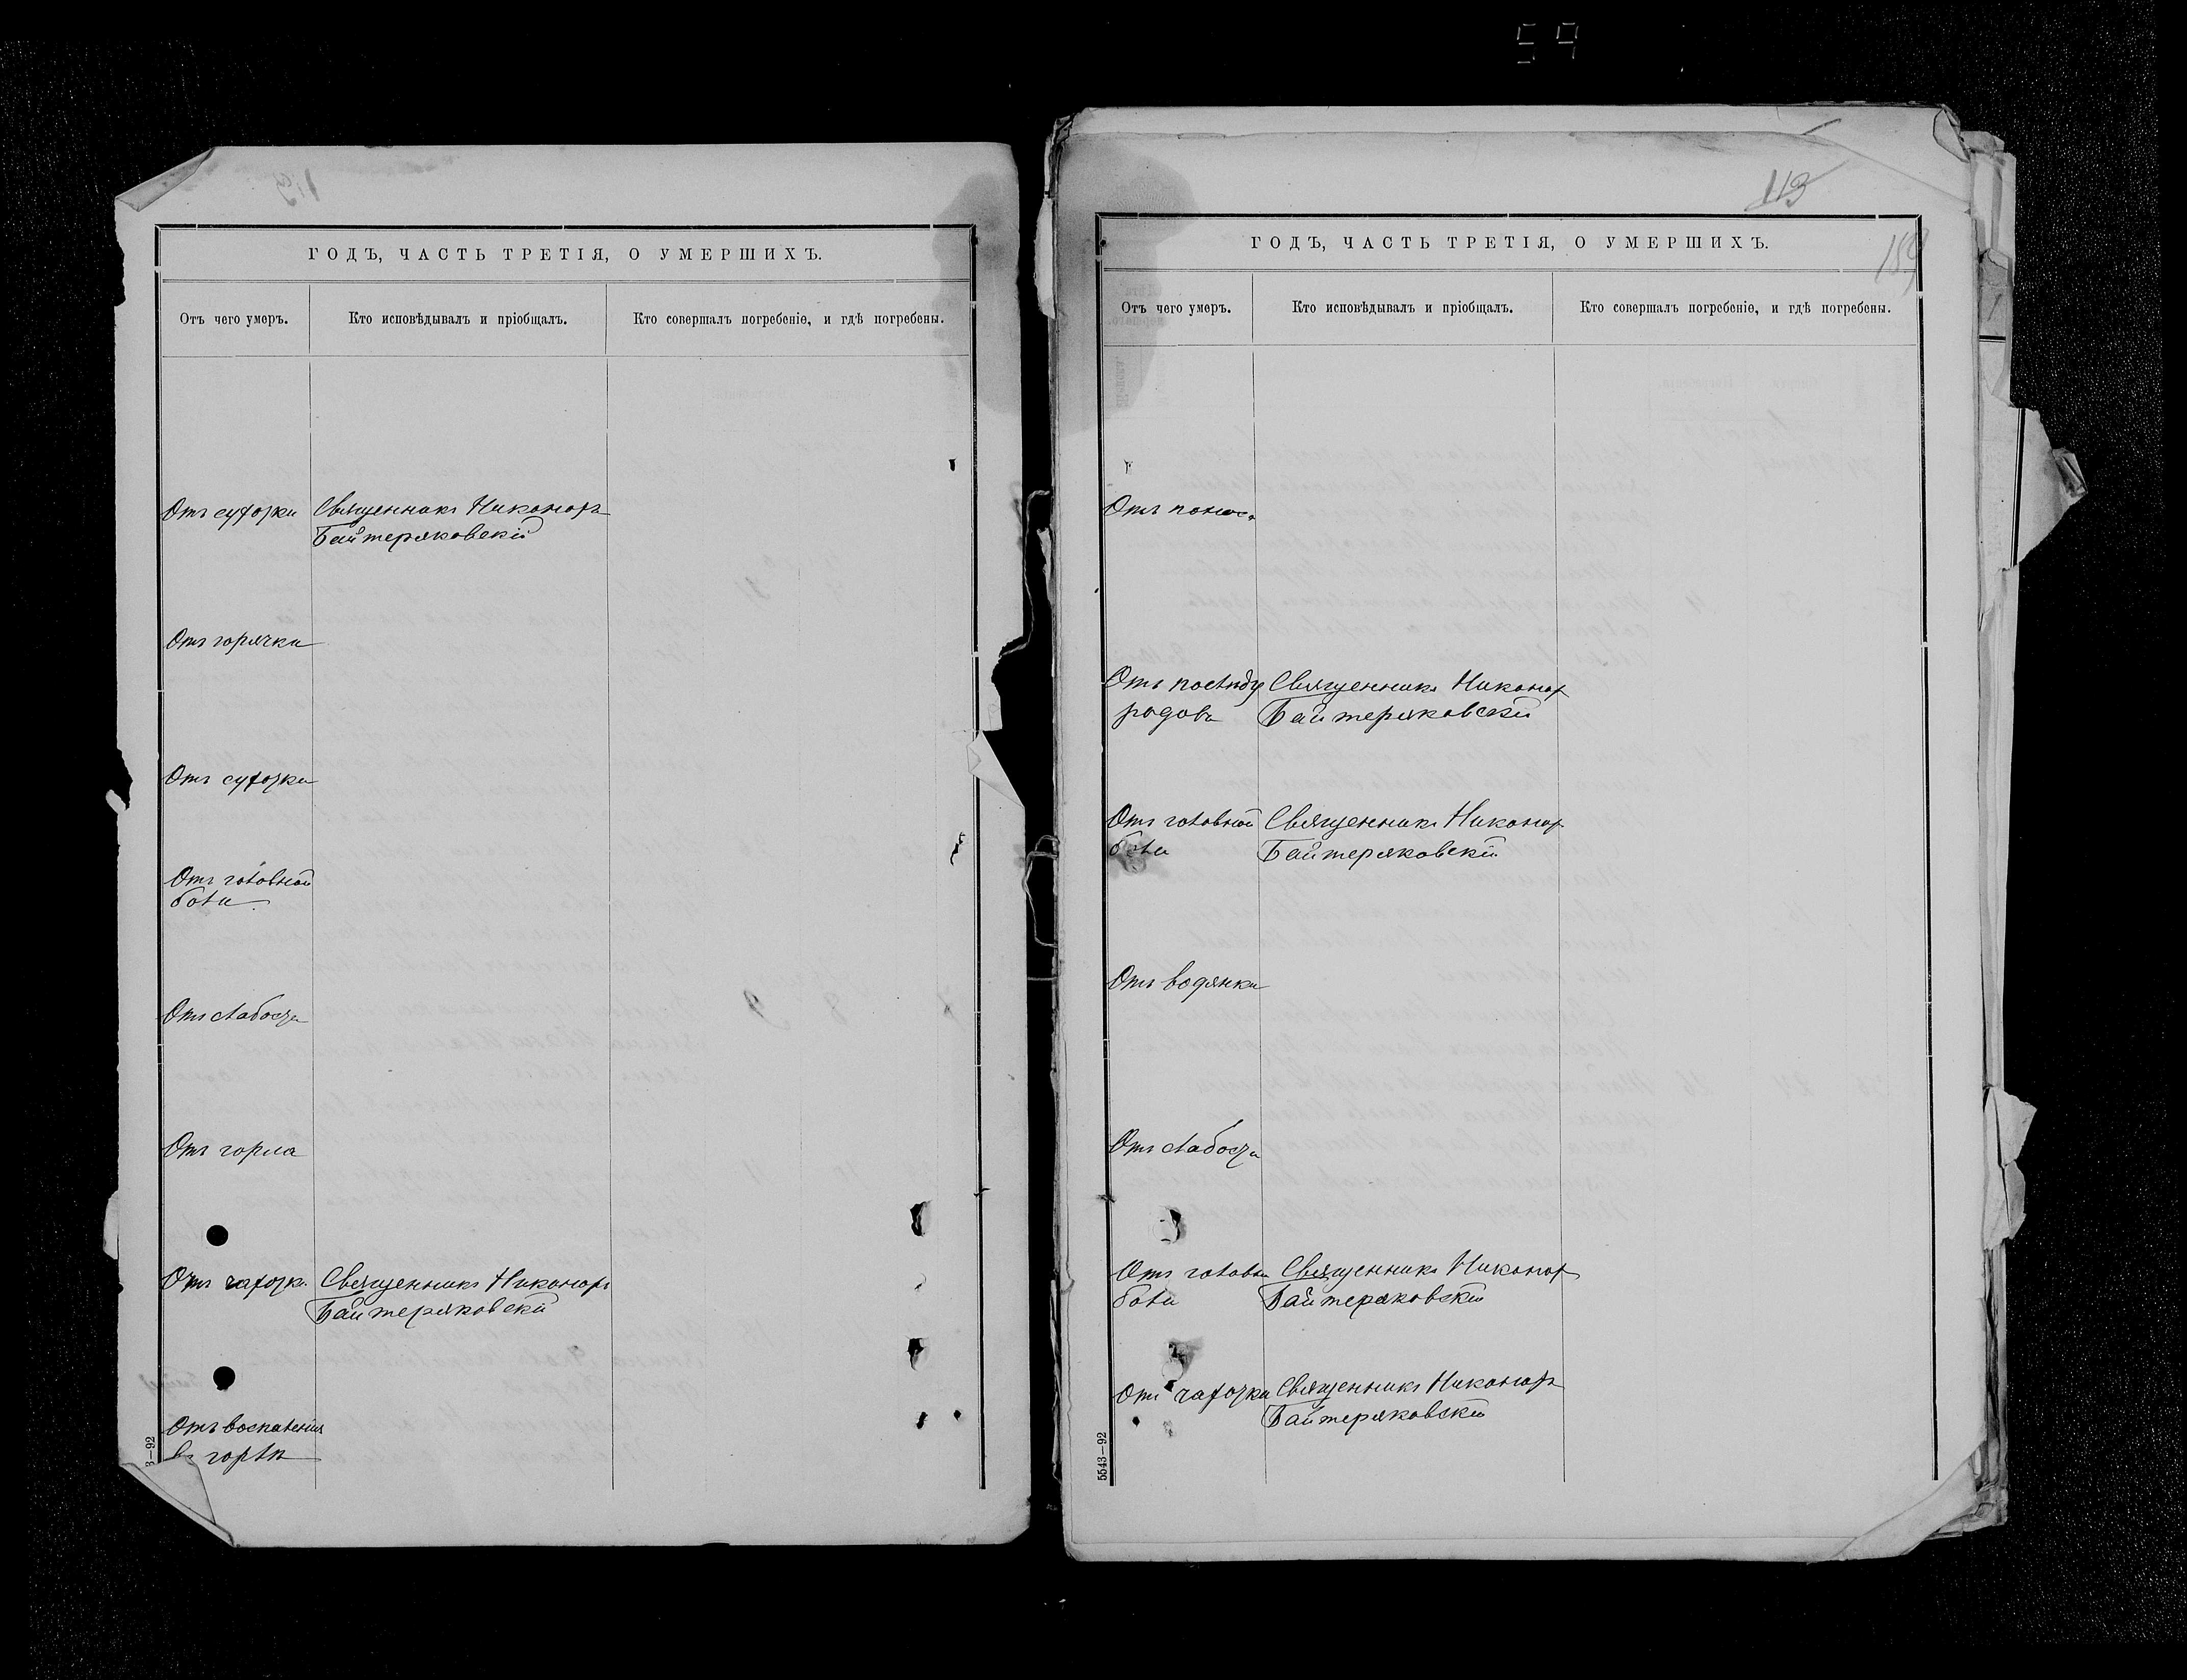 59
ГОДЪ, ЧАСТЬ ТРЕТІЯ, О УМЕРШИХЪ.
Отъ чего умеръ.
Кто исповѣдывалъ и пріобщалъ.
Кто совершалъ погребеніе, и гдѣ погребены.
Отъ сухотки
Священникъ Никаноръ
Байтеряковскій
Отъ горячки
Отъ сухотки
Отъ головной
боли
Отъ слабости
Отъ горла
Отъ чахотки
Священникъ Никаноръ
Байтеряковскій
Отъ воспаленія
въ горлѣ
113
ГОДЪ, ЧАСТЬ ТРЕТІЯ, О УМЕРШИХЪ.
Отъ чего умеръ.
Кто исповѣдывалъ и пріобщалъ.
Кто совершалъ погребеніе, и гдѣ погребены.
Отъ поноса
Отъ послѣду
родовъ
Священникъ Никанор
Байтеряковскій
Отъ головной
боли
Священникъ Никанор
Байтеряковскій
Отъ водянки
Отъ слабости
Отъ головн
боли
Священникъ Никанор
Байтеряковскій
Отъ чахотки
Священникъ Никаноръ
Байтеряковскій
5543—92